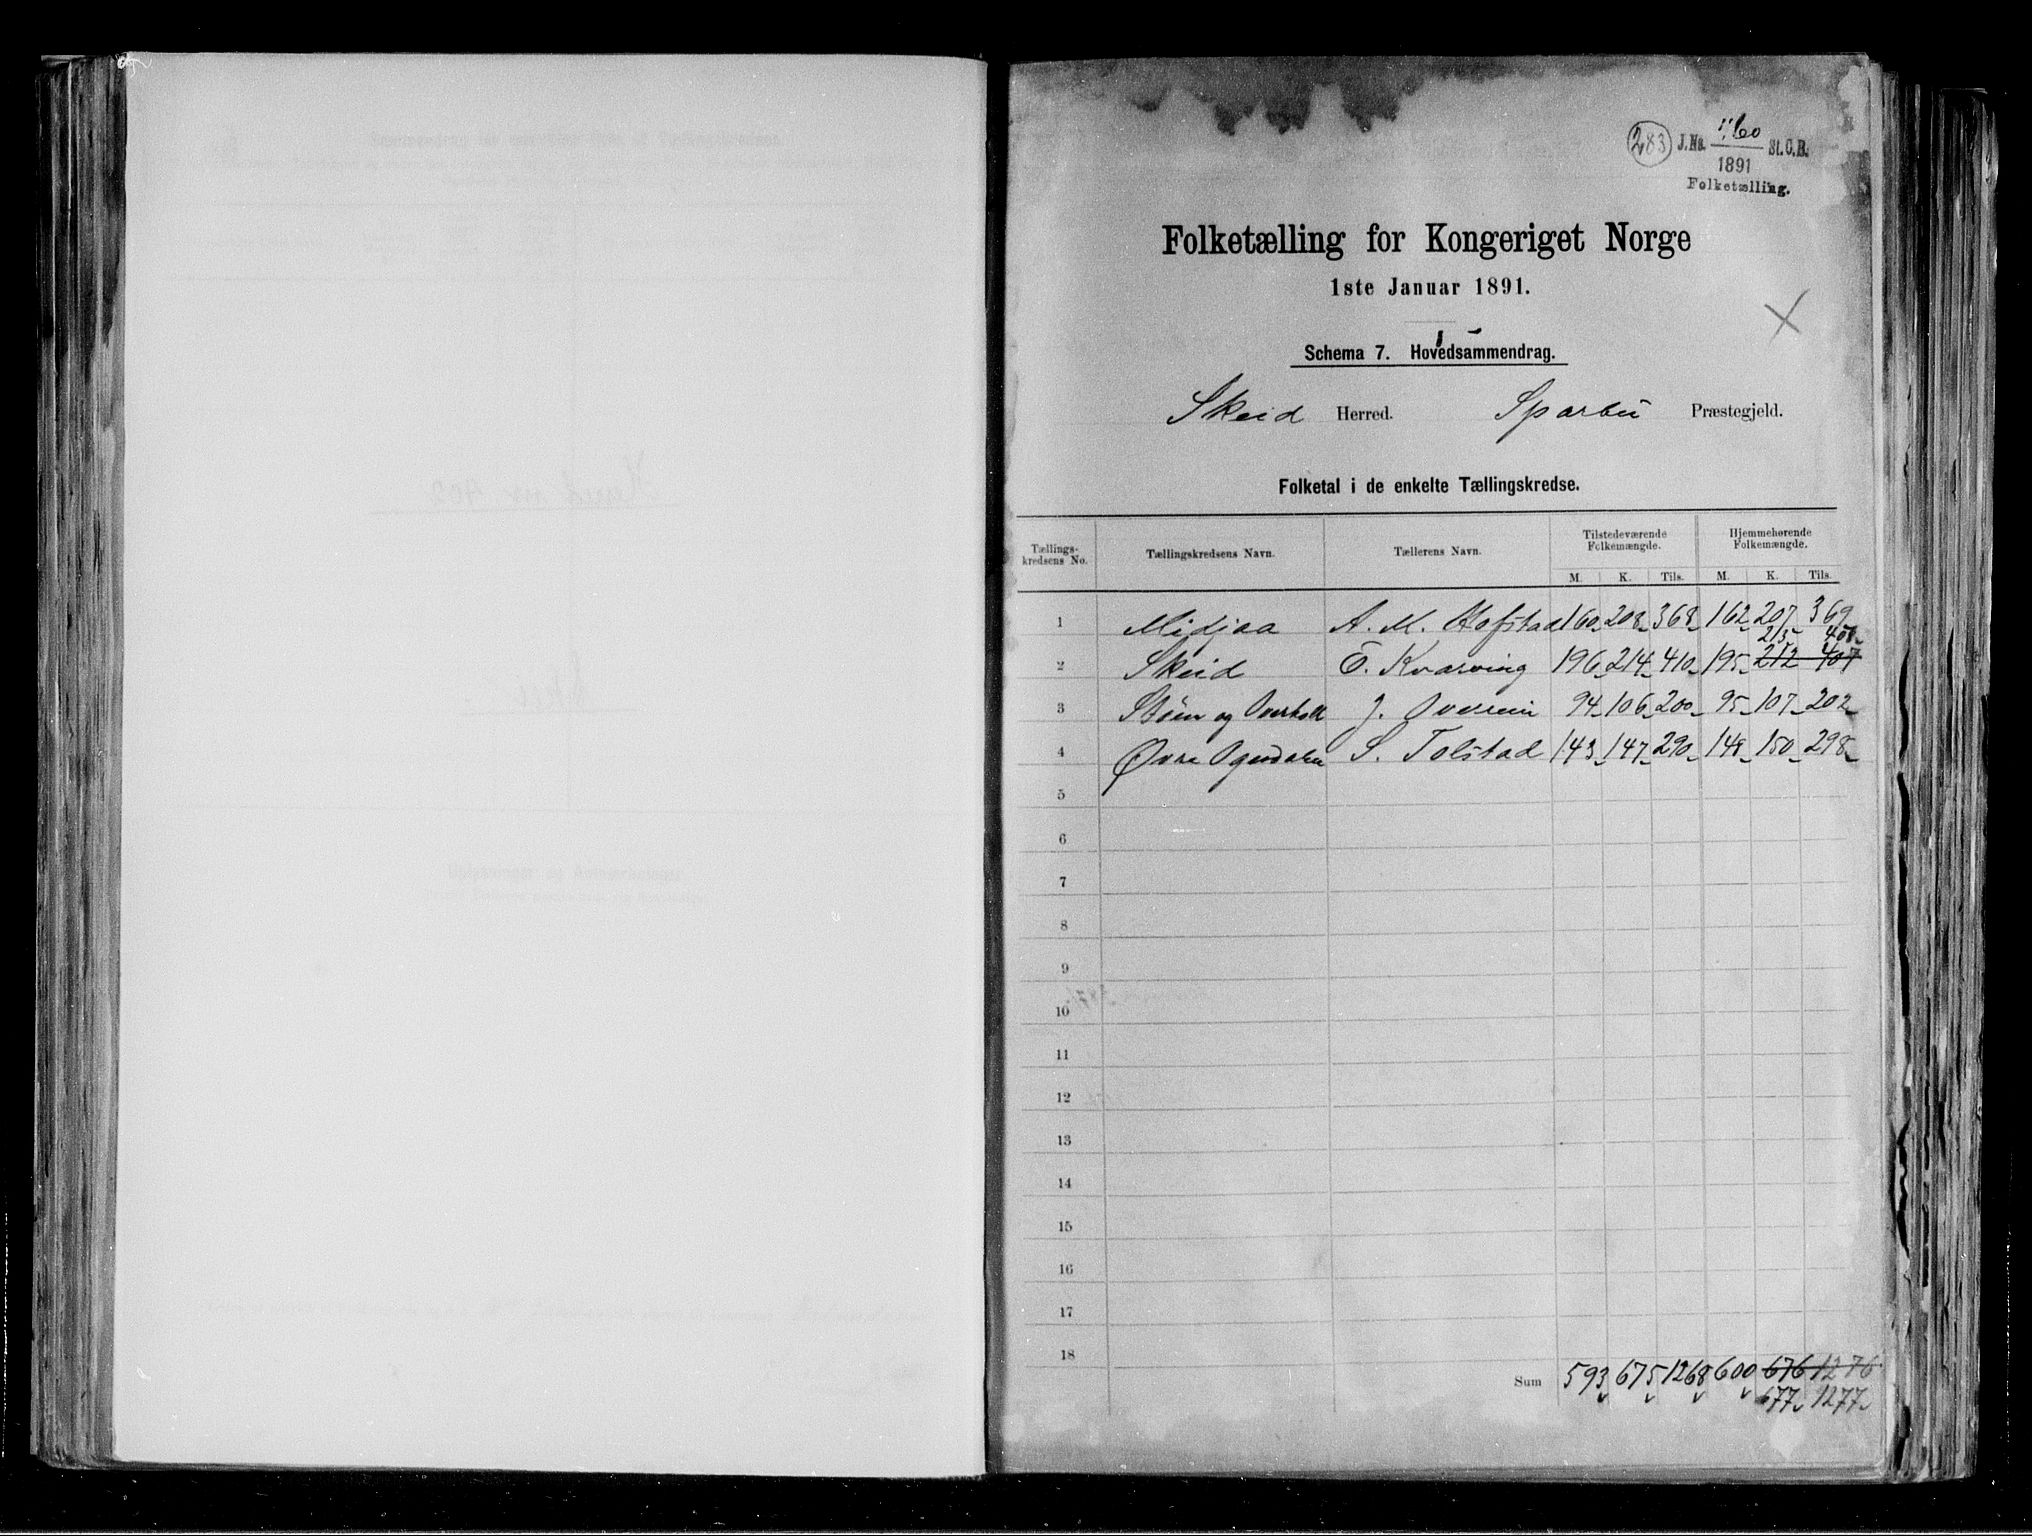 283 J.No. 1891 St.C.B.
Folketælling.
Folketælling for Kongeriget Norge
1ste Januar 1891.
Schema 7. Hovedsammendrag.
Skeid Herred. Sparbu Præstegjeld.
Folketal i de enkelte Tællingskredse.
Tællings-kredsens No. Tællingskredsens Navn. Tællerens Navn. Tilstedeværende Folkemængde. Hjemmehørende Folkemængde.
M. K. Tils. M. K. Tils.
1 Midjaa A. M. Hofstad 160 208 368 162 207 369
213 408
2 Skeid E. Kvarving 196 214 410 195 212 407
3 Støen og J. Overrein 94 106 200 95 107 202
4 Øvre Ogndalen S. Tolstad 143 147 290 148 150 298
5
6
7
8
9
10
11
12
13
14
15
16
17
18
Sum 593 675 1268 600 676 1276
677 1277